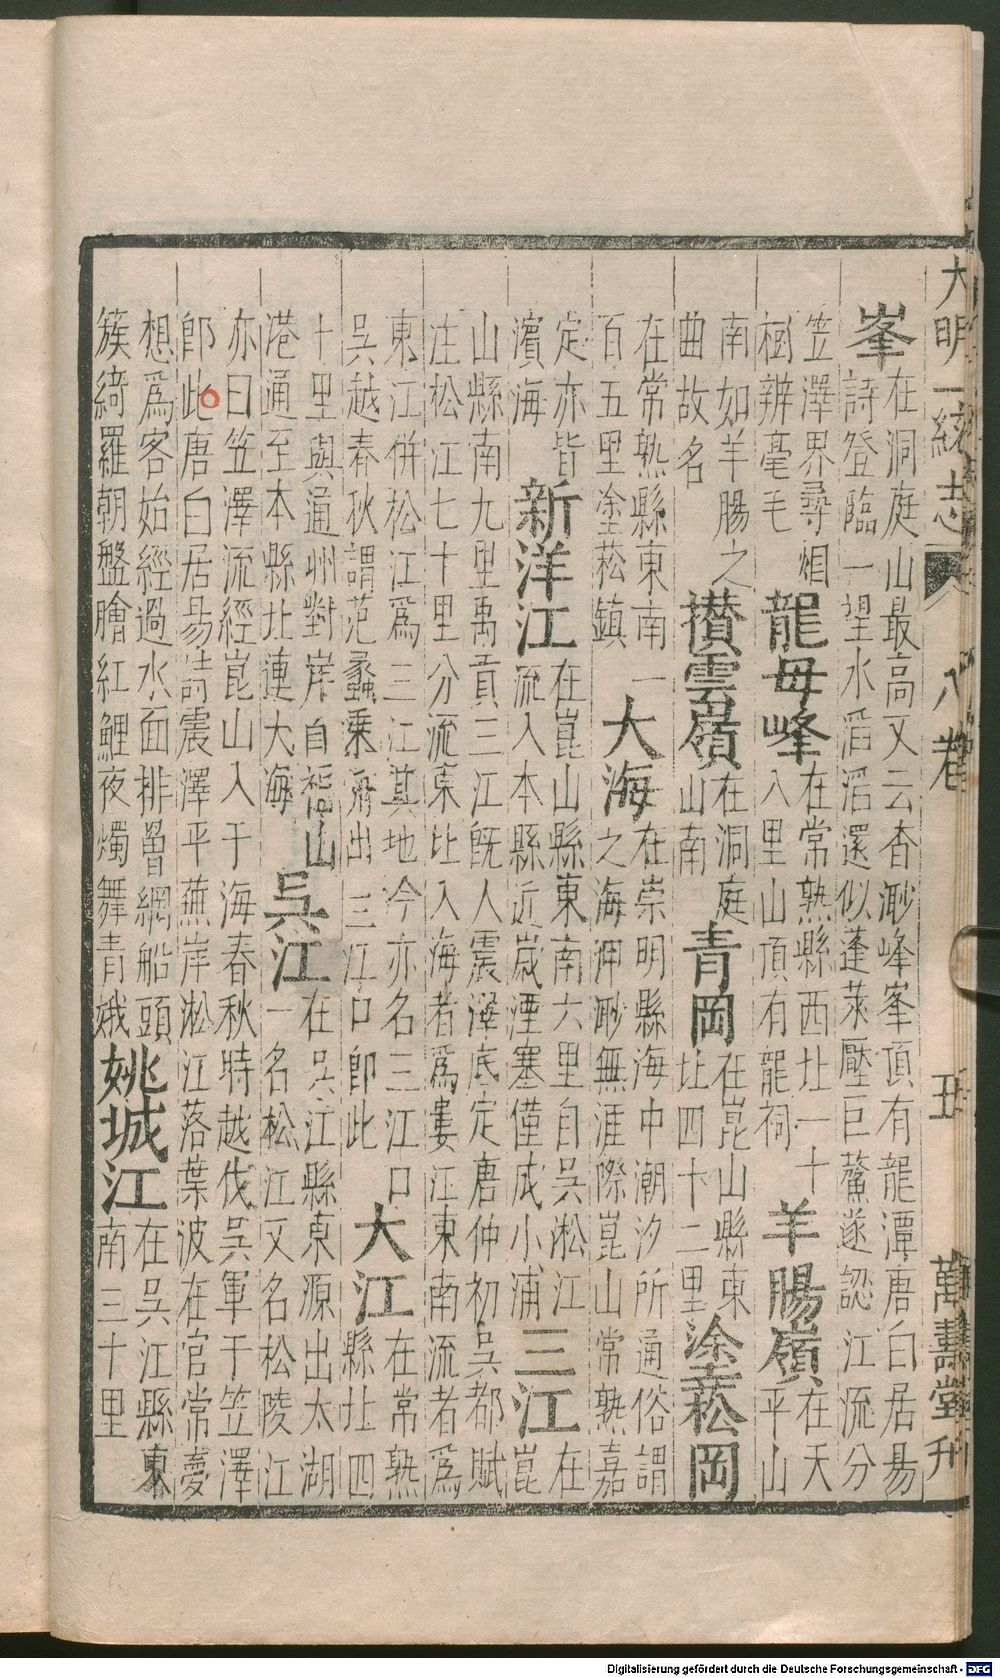 大明一統志 八卷 五 萬壽堂刊
峯 在洞庭山最高又云杳渺峰峯頂有龍潭唐白居易詩登臨一望水滔滔還似蓬萊壓巨鰲遂認江流分
笠澤界尋烟辨毫毛 龍母峰 在常熟縣西北一十八里山頂有龍祠 羊腸嶺 在天平山
南如羊腸之曲故名 攅雲嶺 在洞庭山南 青岡 在崑山縣東北四十二里 塗菘岡
在常熟縣東南一百五里塗菘鎮 大海 在崇明縣海中潮汐所通俗謂之海渺無涯際崑山常熟嘉
定亦皆濱海 新洋江 在崑山縣東南六里自吳淞江流入本縣近歲湮塞僅成小浦 三江 在崑
山縣南九里禹貢三江既入震澤底定唐仲初吳都賦注松江七十里分流東北入海者爲婁江東南流者爲
東江併松江爲三江其地今亦名三江口吳越春秋謂范蠡乘舟出三江口即此 大江 在常熟縣北四
十里與通州對岸自福山港通至本縣北連大海 吳江 在吳江縣東源出太湖一名松江又名松陵江
亦曰笠澤流經崑山入于海春秋時越伐吳軍于笠澤即此唐白居易詩震澤平蕪岸淞江落葉波在官常夢
想爲客始經過水面排罾網船頭簇綺羅朝盤膾紅鯉夜燭舞青娥 姚城江 在吳江縣東南三十里
Digitalisierung gefördert durch die Deutsche Forschungsgemeinschaft - DFG